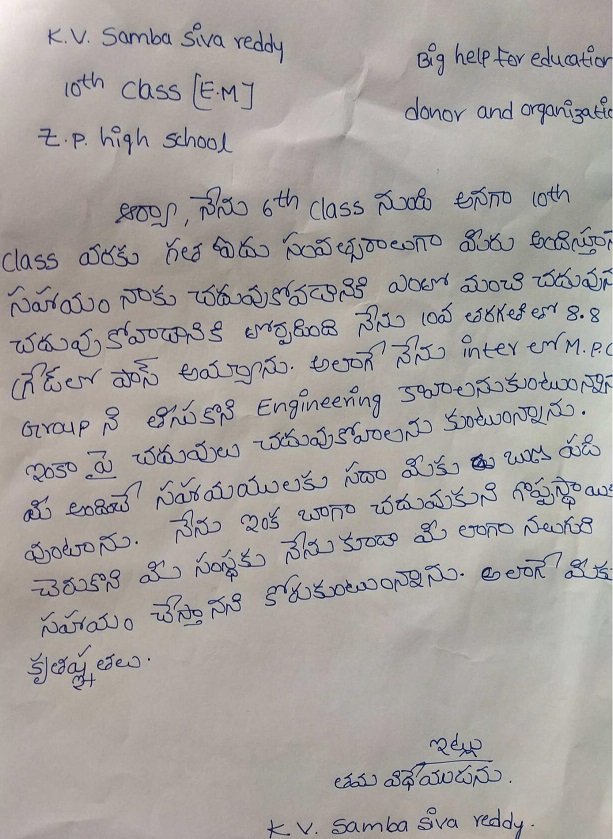 K.V. Samba Siva reddy
10th Class [E.M]
Z.P. high school
Big help for education
donor and organizatio
ఆర్యా, నేను 6th class నుండి అనగా 10th
class వరకు గత ఐదు సంవత్సరాలుగా మీరు అందిస్తూన
సహాయం నాకు చదువుకోవడానికి ఎంతో మంచి చదువున
చదువుకోవాడానికి తోర్పడింది నేను 10వ తరగతి లో 8.8
గ్రేడ్‌లో పాస్ అయ్యాను. అలాగే నేను inter లో M.P.C
Group ని తీసుకొని Engineering కావాలనుకుంటున్నాన
ఇంకా పై చదువులు చదువుకోవాలను కుంటున్నాను.
మీ అందించే సహాయములకు సదా మీకు ఋణ పడి
వుంటాను. నేను ఇంక బాగా చదువుకుని గొప్పస్థాయి
చెరుకొని మీ సంస్థకు నేను కూడా మీ లాగా నలుగురి
సహాయం చేస్తానని కోరుకుంటున్నాను. అలాగే మీకు
కృతజ్ఞతలు.
ఇట్లు
తమ విధేయుడను.
K.V. Samba Siva reddy.